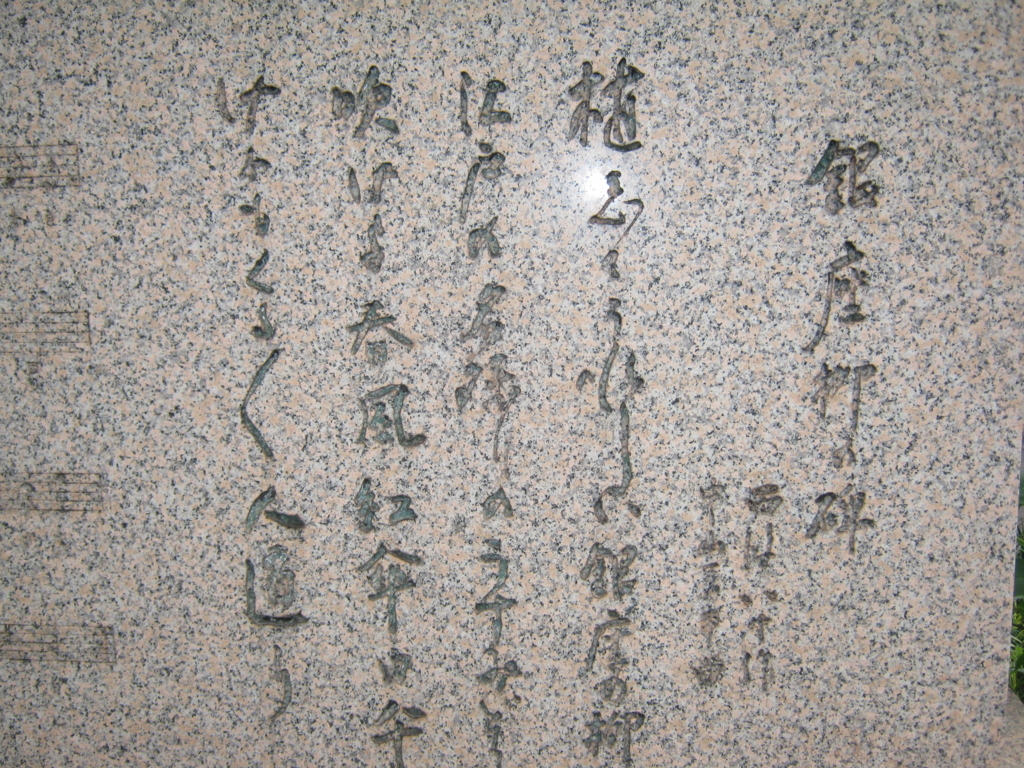 銀座柳の碑
西條八十作
中山晋平曲
植ゑてうれしい銀座の柳
江戸の名残のうすみど
吹けよ春風紅傘日傘
けふもくるくる人通り